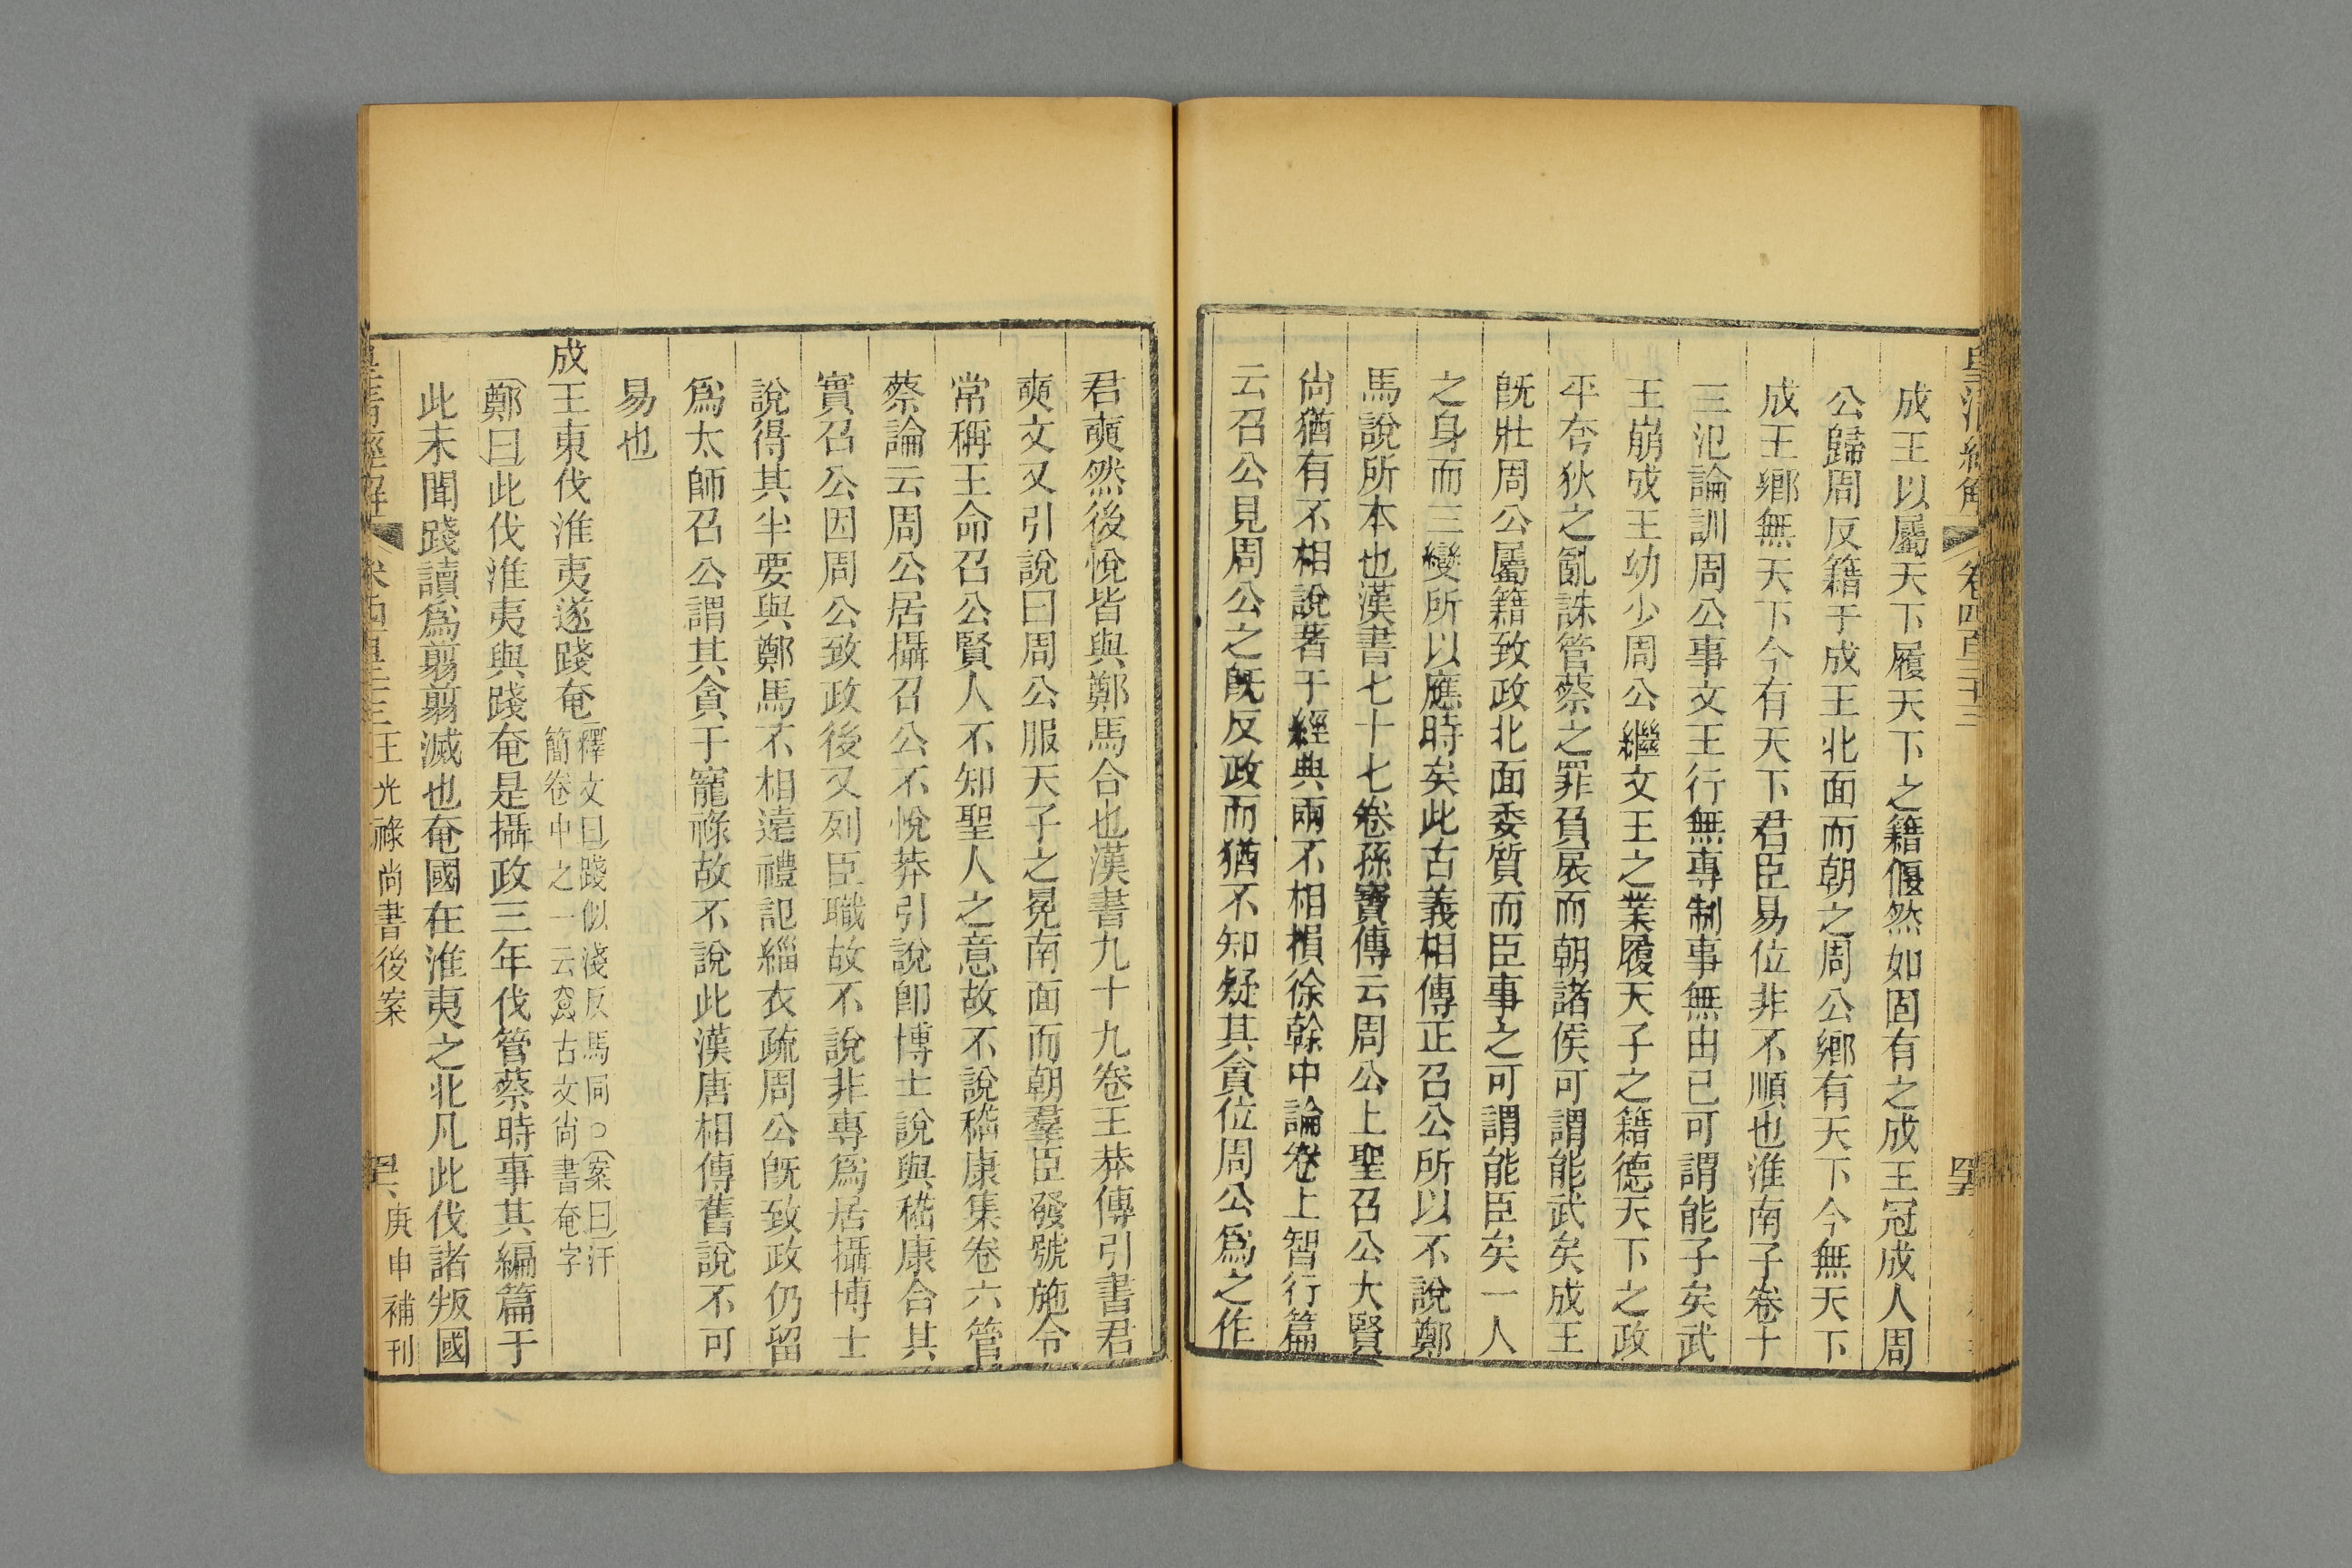 皇清經解
卷四百三十三
成王以屬天下履天下之籍偃然如固有之成王冠成人周
公歸周反籍于成王北面而朝之周公鄉有天下今無天下
成王鄉無天下今有天下君臣易位非不順也淮南子卷十
三氾論訓周公事文王行無專制事無由己可謂能子矣武
王崩成王幼少周公繼文王之業履天子之籍德天下之政
平夸狄之亂誅管蔡之罪負扆而朝諸侯可謂能武矣成王
旣壯周公屬籍致政北面委質而臣事之可謂能臣矣一人
之身而三變所以應時矣此古義相傳正召公所以不說鄭
馬說所本也漢書七十七卷孫寶傳云周公上聖召公大賢
尙猶有不相說著于經典兩不相損徐榦中論卷上智行篇
云召公見周公之旣反政而猶不知疑其貪位周公爲之作
君奭然後悅皆與鄭馬合也漢書九十九卷王莽傳引書君
奭文又引說曰周公服天子之冕南面而朝羣臣發號施令
常稱王命召公賢人不知聖人之意故不說嵇康集卷六管
蔡論云周公居攝召公不悅莽引說卽博士說與嵇康合其
實召公因周公致政後又列臣職故不說非專爲居攝博士
說得其半要與鄭馬不相遠禮記緇衣疏周公旣致政仍留
爲太師召公謂其貪于寵祿故不說此漢唐相傳舊說不可
易也
成王東伐淮夷遂踐奄
釋文曰踐似淺反馬同○案曰汗
簡卷中之一云𡘮古文尙書奄字
鄭曰此伐淮夷與踐奄是攝政三年伐管蔡時事其編篇于
此未聞踐讀爲翦翦滅也奄國在淮夷之北凡此伐諸叛國
皇清經解
王光祿尙書後案
庚申補刊